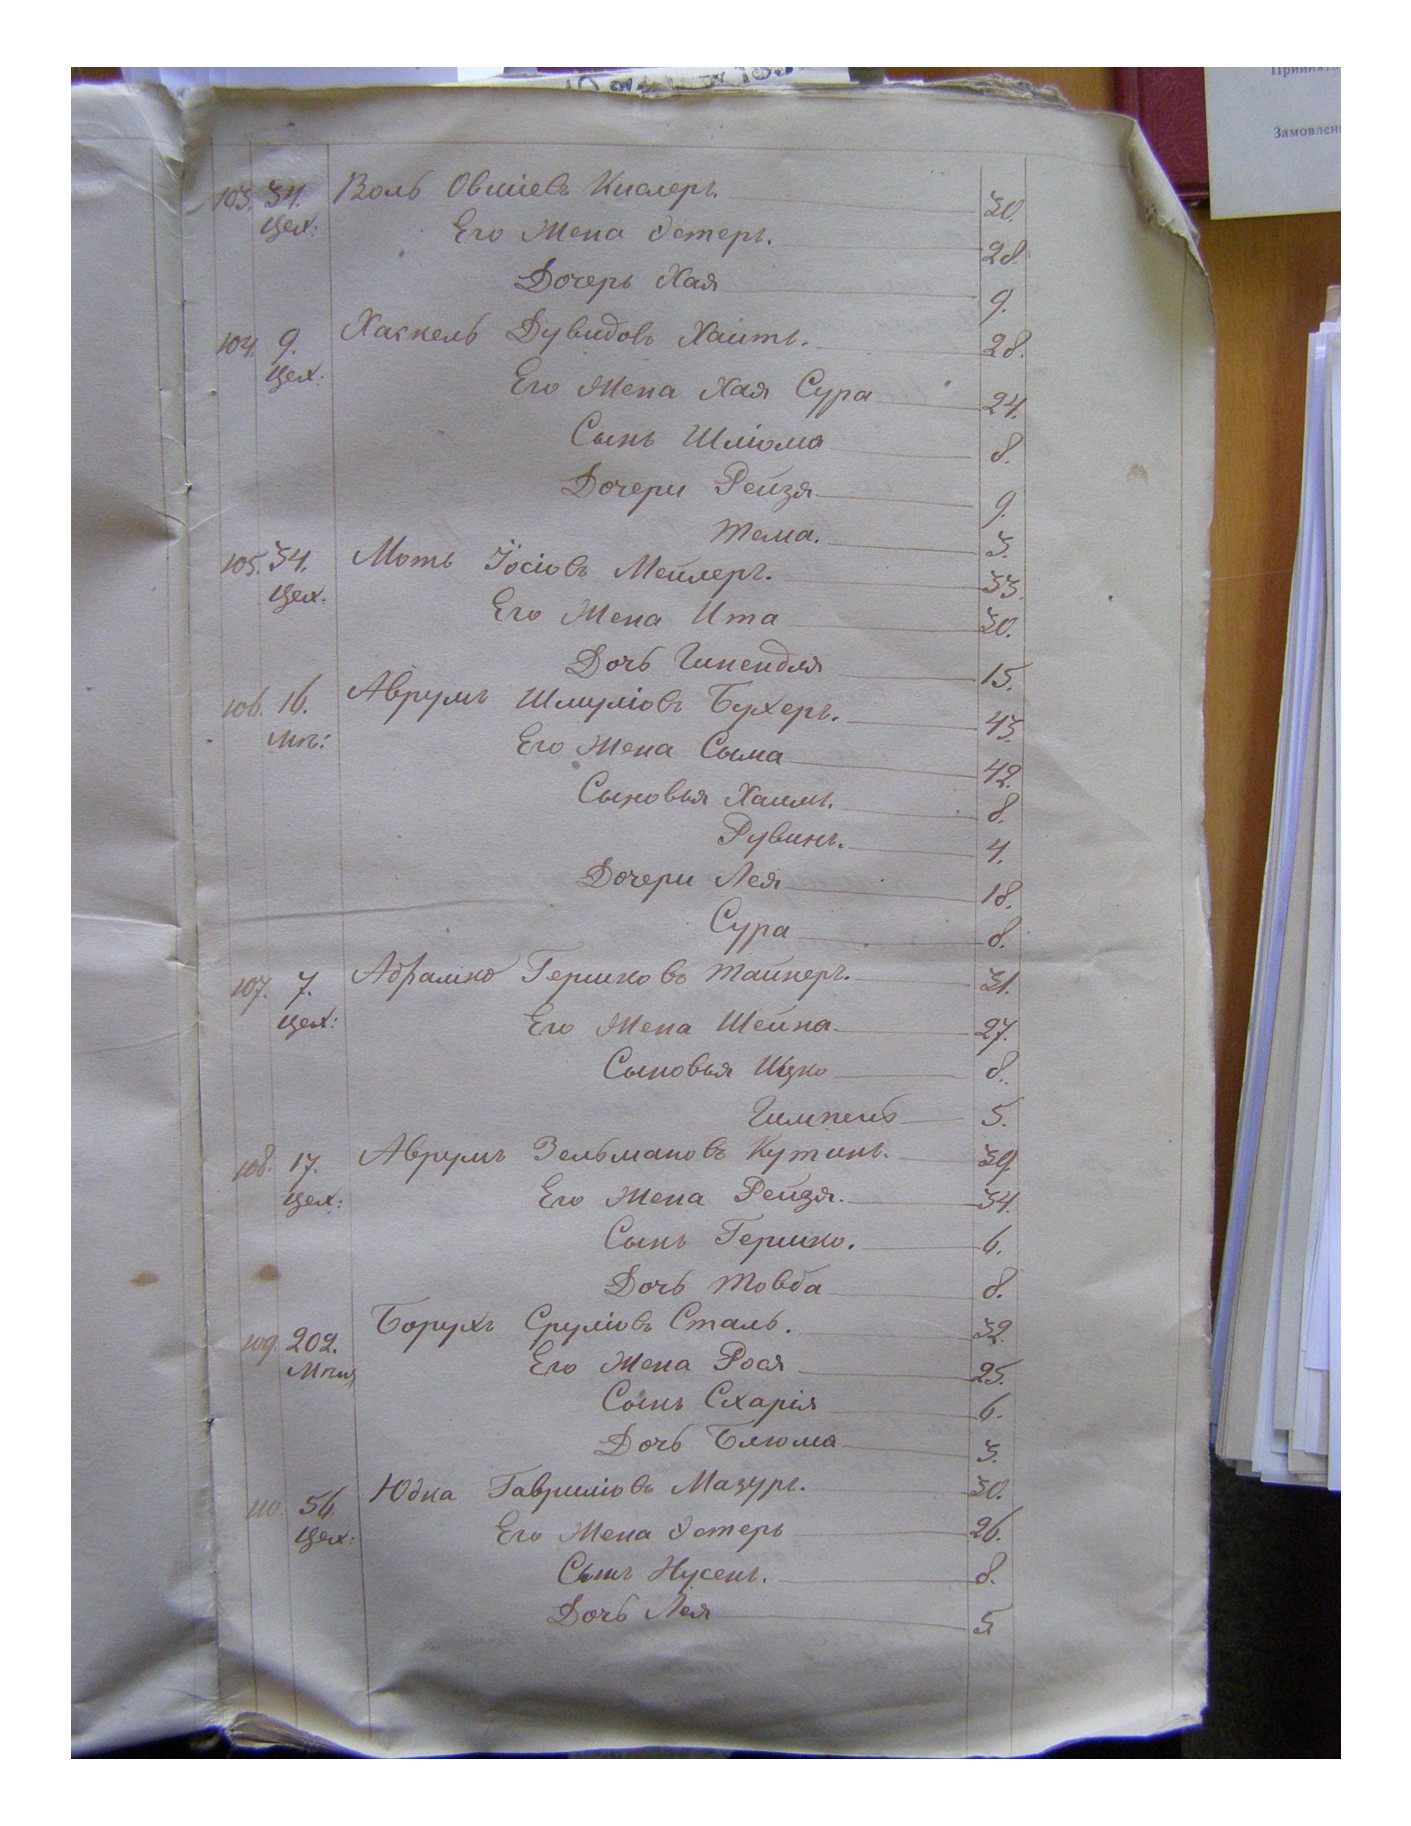 Принято
Замовлен
103. 34. Воль Овшіевъ Кислеръ. 30.
Цех: Его Жена Эстеръ. 28.
Дочерь Хая 9.
104. 9. Хаскель Дувидовъ Хаитъ. 28.
Цех: Его Жена Хая Сура 24.
Сынъ Шліома 8.
Дочери Рейзя 9.
Тема. 3.
105. 34. Моть Іосіовъ Мейлеръ. 33.
Цех. Его Жена Ита 30.
Дочь Гинендля 15.
106. 16. Аврумъ Шмуліовъ Бухеръ. 43.
Мп: Его Жена Сыма 42.
Сыновья Хаимъ. 8.
Рувинъ. 4.
Дочери Лея 18.
Сура 8.
107. 7. Абрамко Гершковъ Тайнеръ. 31.
Цех: Его Жена Шейна 27.
Сыновья Ицко 8.
Гимпель 5.
108. 17. Аврумъ Зельмановъ Кутинъ. 39.
Цех: Его Жена Рейзя. 34.
Сынъ Гершко. 6.
Дочь Товба 8.
109. 202. Борухъ Сруліовъ Сталь. 32.
Его Жена Рося 25.
Сынъ Схарія 6.
Дочь Блюма 3.
110. 56. Юдка Гавриліовъ Мазуръ. 30.
Цех: Его Жена Эстеръ 26.
Сынъ Нусенъ. 8.
Дочь Лея 5